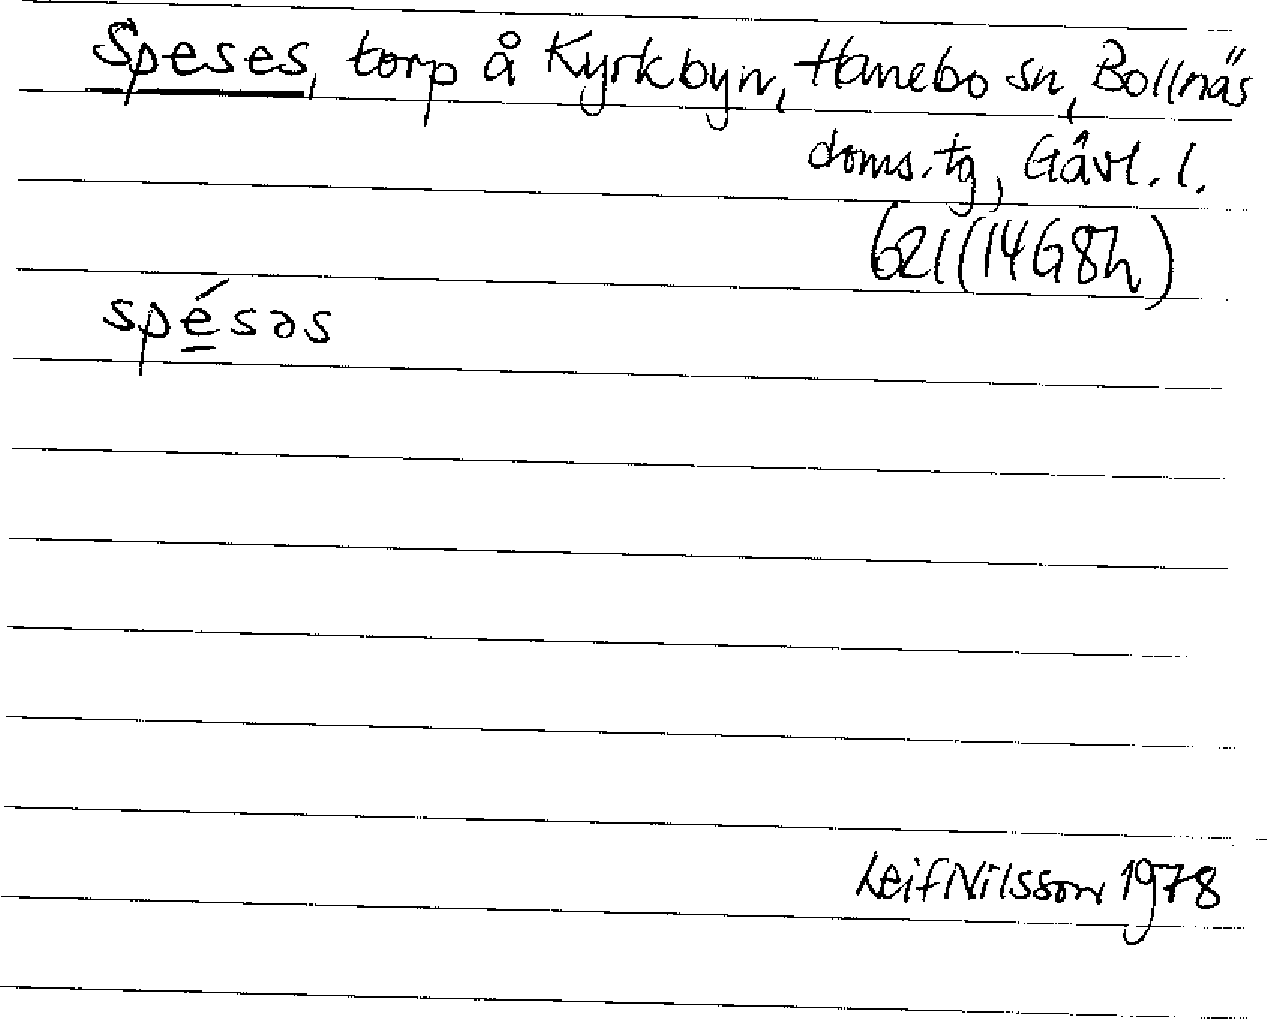 Speses, torp å Kyrkbyn, Hanebo sn, Bollnäs
doms. tg, Gävl. l.
621 (14G8h)
spésəs
Leif Nilsson 1978